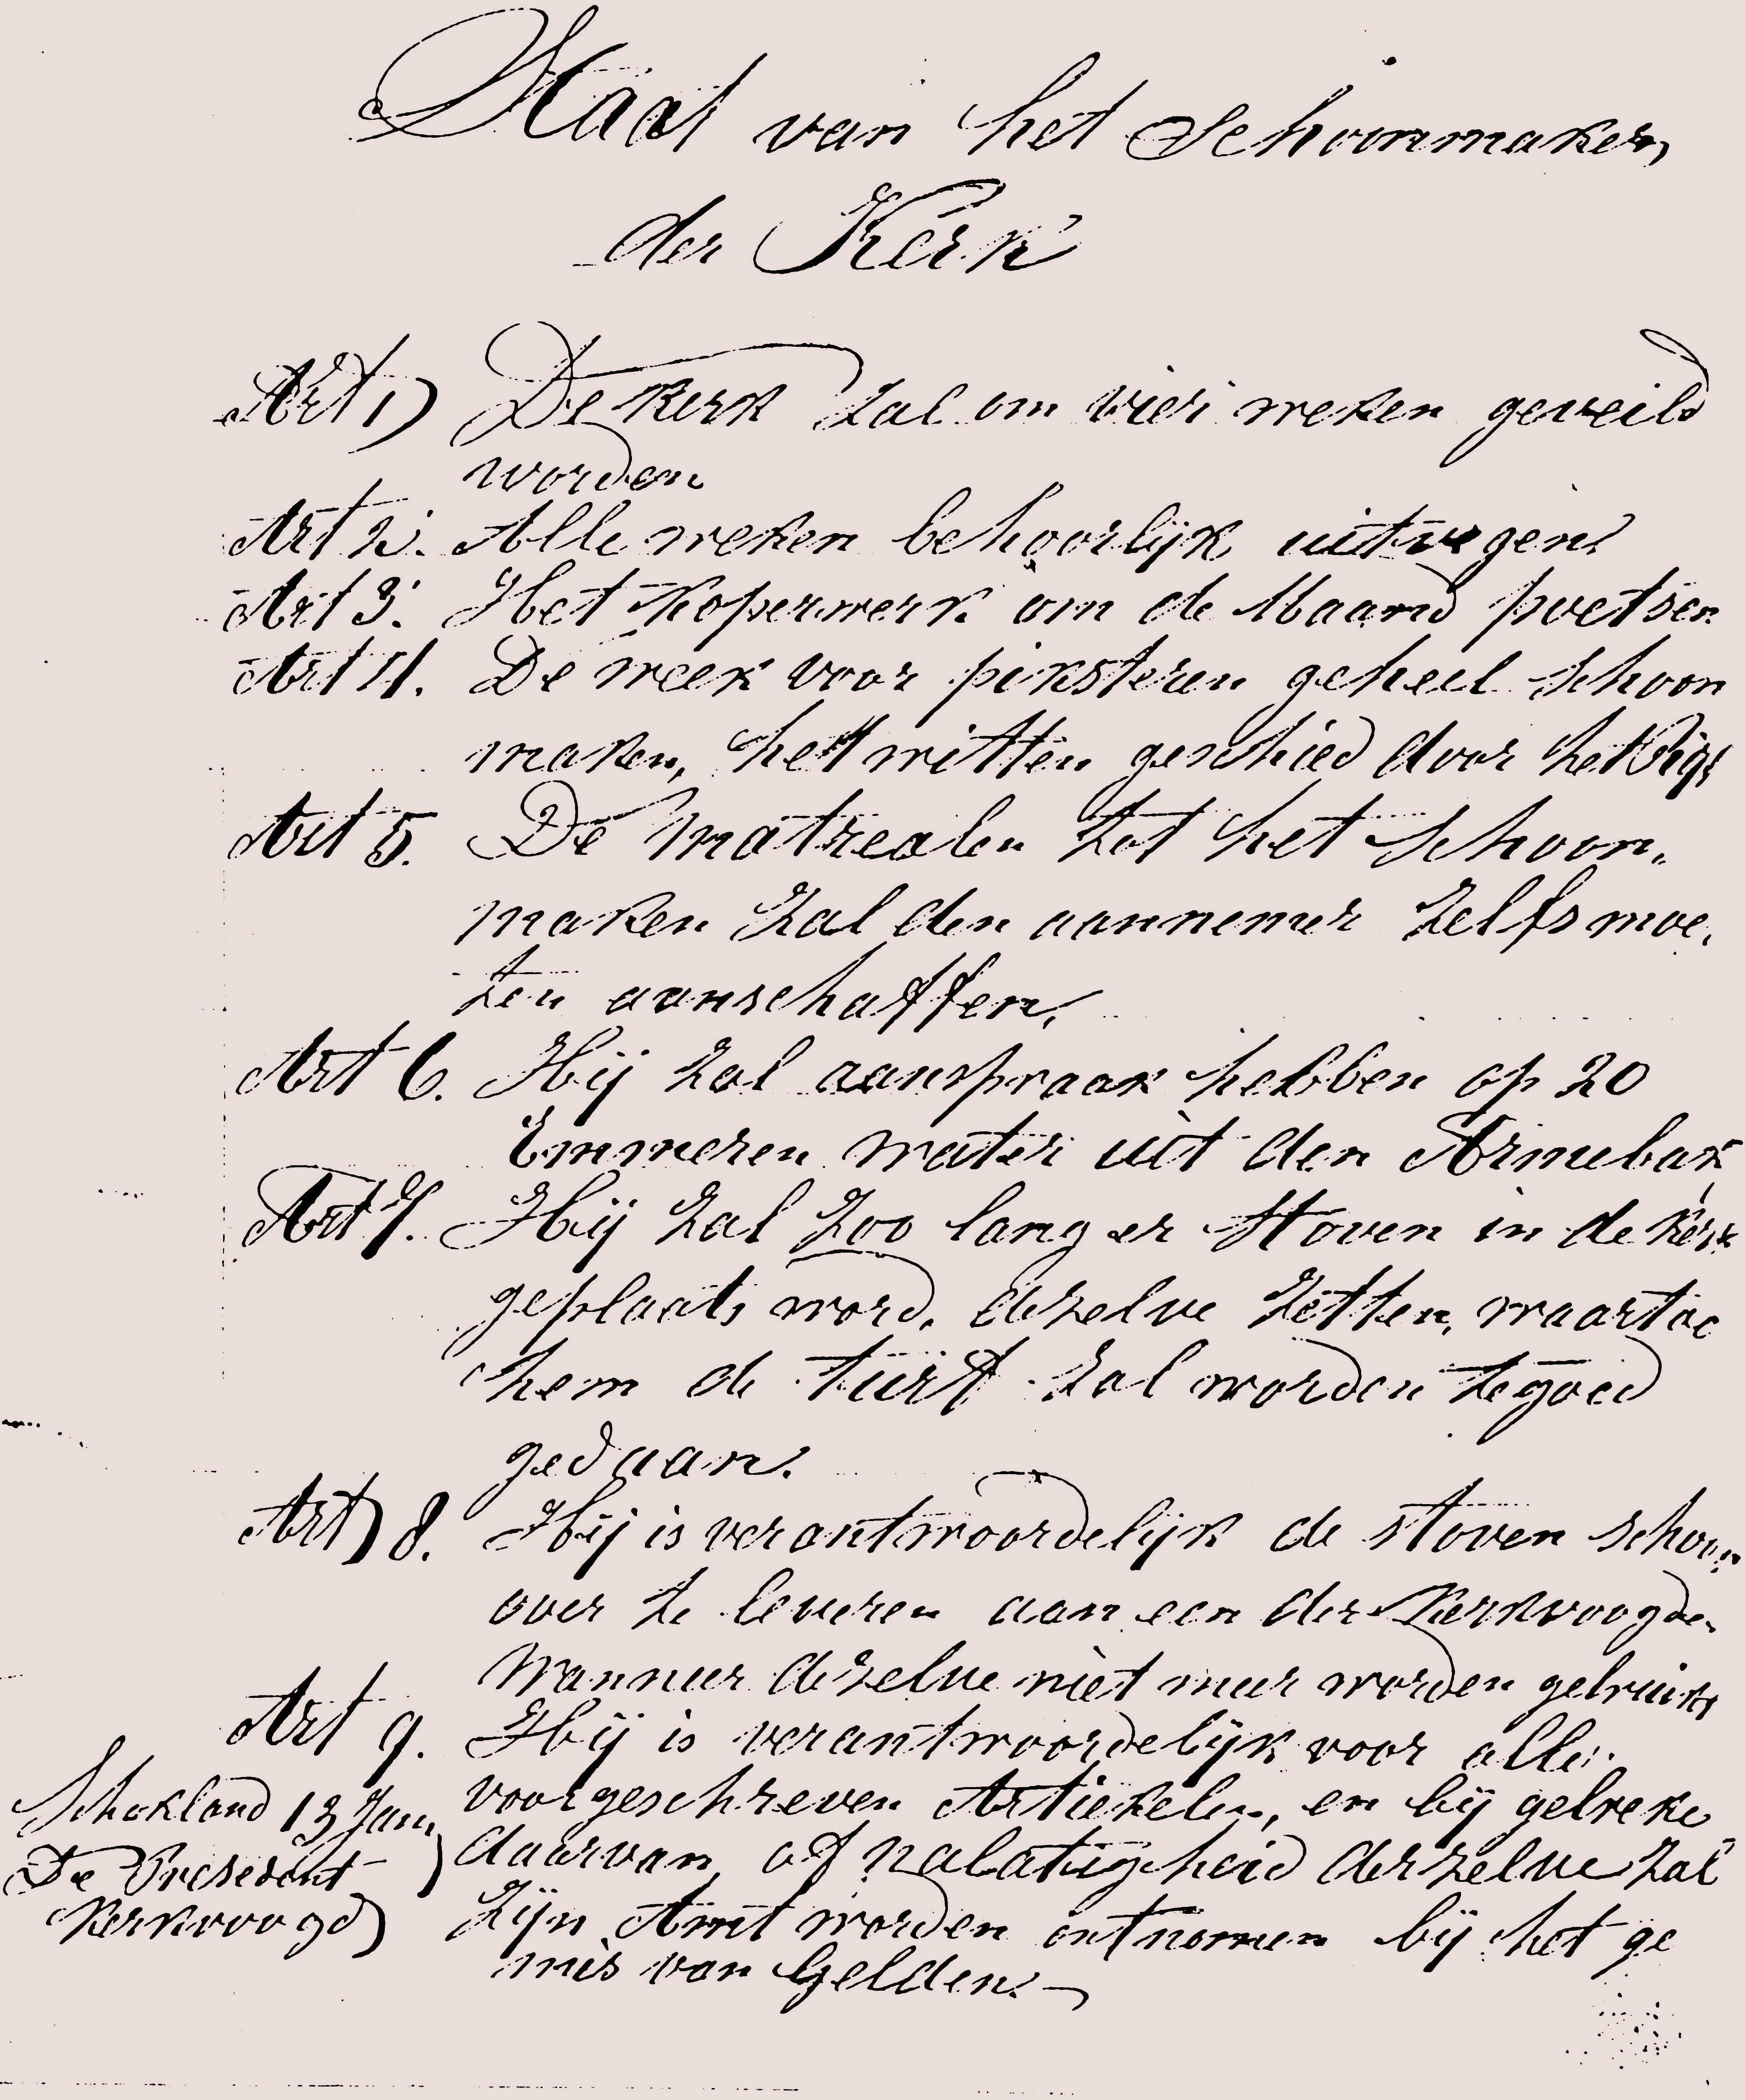 Staat van het Schoonmaken
der Kerk
Art 1) De Kerk zal om vier weken geveild
worden
Art 2. Alle weken behoorlijk uitvegen
Art 3. Het koperwerk om de Maand poetsen
Art 4. De week voor pinksteren geheel schoon
maken, het witten geschied door het Rijk
Art 5. De matrealen tot het schoon„
maken zal den aannemer zelfs moe„
ten aanschaffen.
Art 6. Hij zal aanspraak hebben op 20
Emmeren water uit den Armebak
Art 7. Hij zal zoo lang er stoven in de kerk
geplaats word, dezelve zetten, waartoe
hem de turf zal worden tegoed
gedaan.
Art) 8. Hij is verantwoordelijk de stoven schoon
over te leveren aan een der Kerkvoogden
Wanneer dezelve niet meer worden gebruikt
Art 9. Hij is verantwoordelijk voor alle
voorgeschreven Artiekelen, en bij gebreke
daarvan, of nalatigheid derzelve zal
zijn Amt worden ontnomen bij het ge
mis van Gelden.
Schokland 13 Jan
De President
Kerkvoogd)